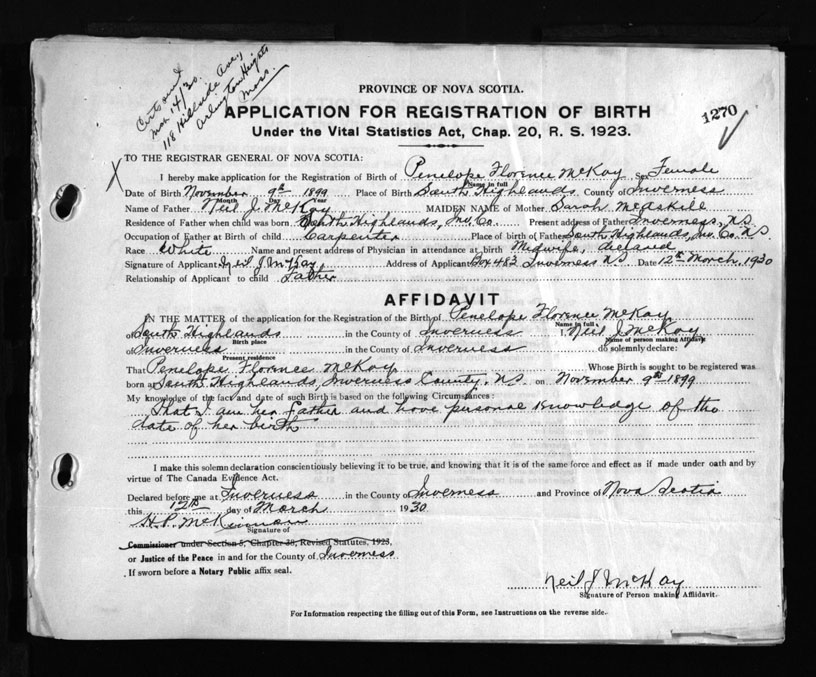 Cert sent
Mar 14/30.
118 Hillside Ave,
Arlington Heights
Mass.
1270
PROVINCE OF NOVA SCOTIA.
APPLICATION FOR REGISTRATION OF BIRTH
Under the Vital Statistics Act, Chap. 20, R. S. 1923.
TO THE REGISTRAR GENERAL OF NOVA SCOTIA:
I hereby make application for the Registration of Birth of Penelope Florence McKay Sex Female
Name in full
Date of Birth November 9th 1899 Place of Birth South Highlands County of Inverness
Month Day Year
Name of Father Neil J. McKay MAIDEN NAME of Mother Sarah McAskill
Residence of Father when child was born South Highlands, Inv. Co. Present address of Father Inverness, N.S.
Occupation of Father at Birth of child Carpenter Place of birth of Father South Highlands, Inv. Co. N.S
Race White Name and present address of Physician in attendance at birth Midwife, deceased
Signature of Applicant Neil J McKay Address of Applicant Box 483 Inverness N.S Date 12th March, 1930
Relationship of Applicant to child Father
AFFIDAVIT
IN THE MATTER of the application for the Registration of the Birth of Penelope Florence McKay
Name in full
South Highlands in the County of Inverness I, Neil J McKay
Birth place Name of person making Affidavit
Inverness in the County of Inverness do solemnly declare:
Present residence
That Penelope Florence McKay Whose Birth is sought to be registered was
born at South Highlands, Inverness County, N.S. on November 9th 1899
My knowledge of the fact and date of such Birth is based on the following Circumstances:
That I am her father and have personal knowledge of the
date of her birth
I make this solemn declaration conscientiously believing it to be true, and knowing that it is of the same force and effect as if made under oath and by
virtue of The Canada Evidence Act.
Declared before me at Inverness in the County of Inverness and Province of Nova Scotia
this 12th day of March 1930
H.P. McKinnon
Signature of
Commissioner under Section 5, Chapter 38, Revised Statutes, 1923,
or Justice of the Peace in and for the County of Inverness
If sworn before a Notary Public affix seal.
Neil J McKay
Signature of Person making Affidavit.
For Information respecting the filling out of this Form, see Instructions on the reverse side.